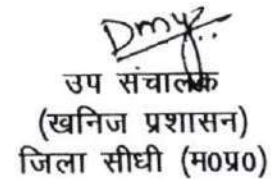 उप संचालक
(खनिज प्रशासन)
जिला सीधी (म०प्र०)